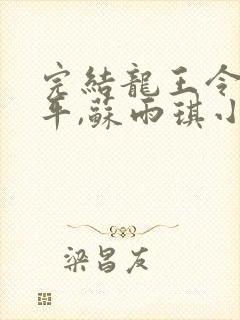 完結龍王令
年,蘇雨琪小
梁昌友